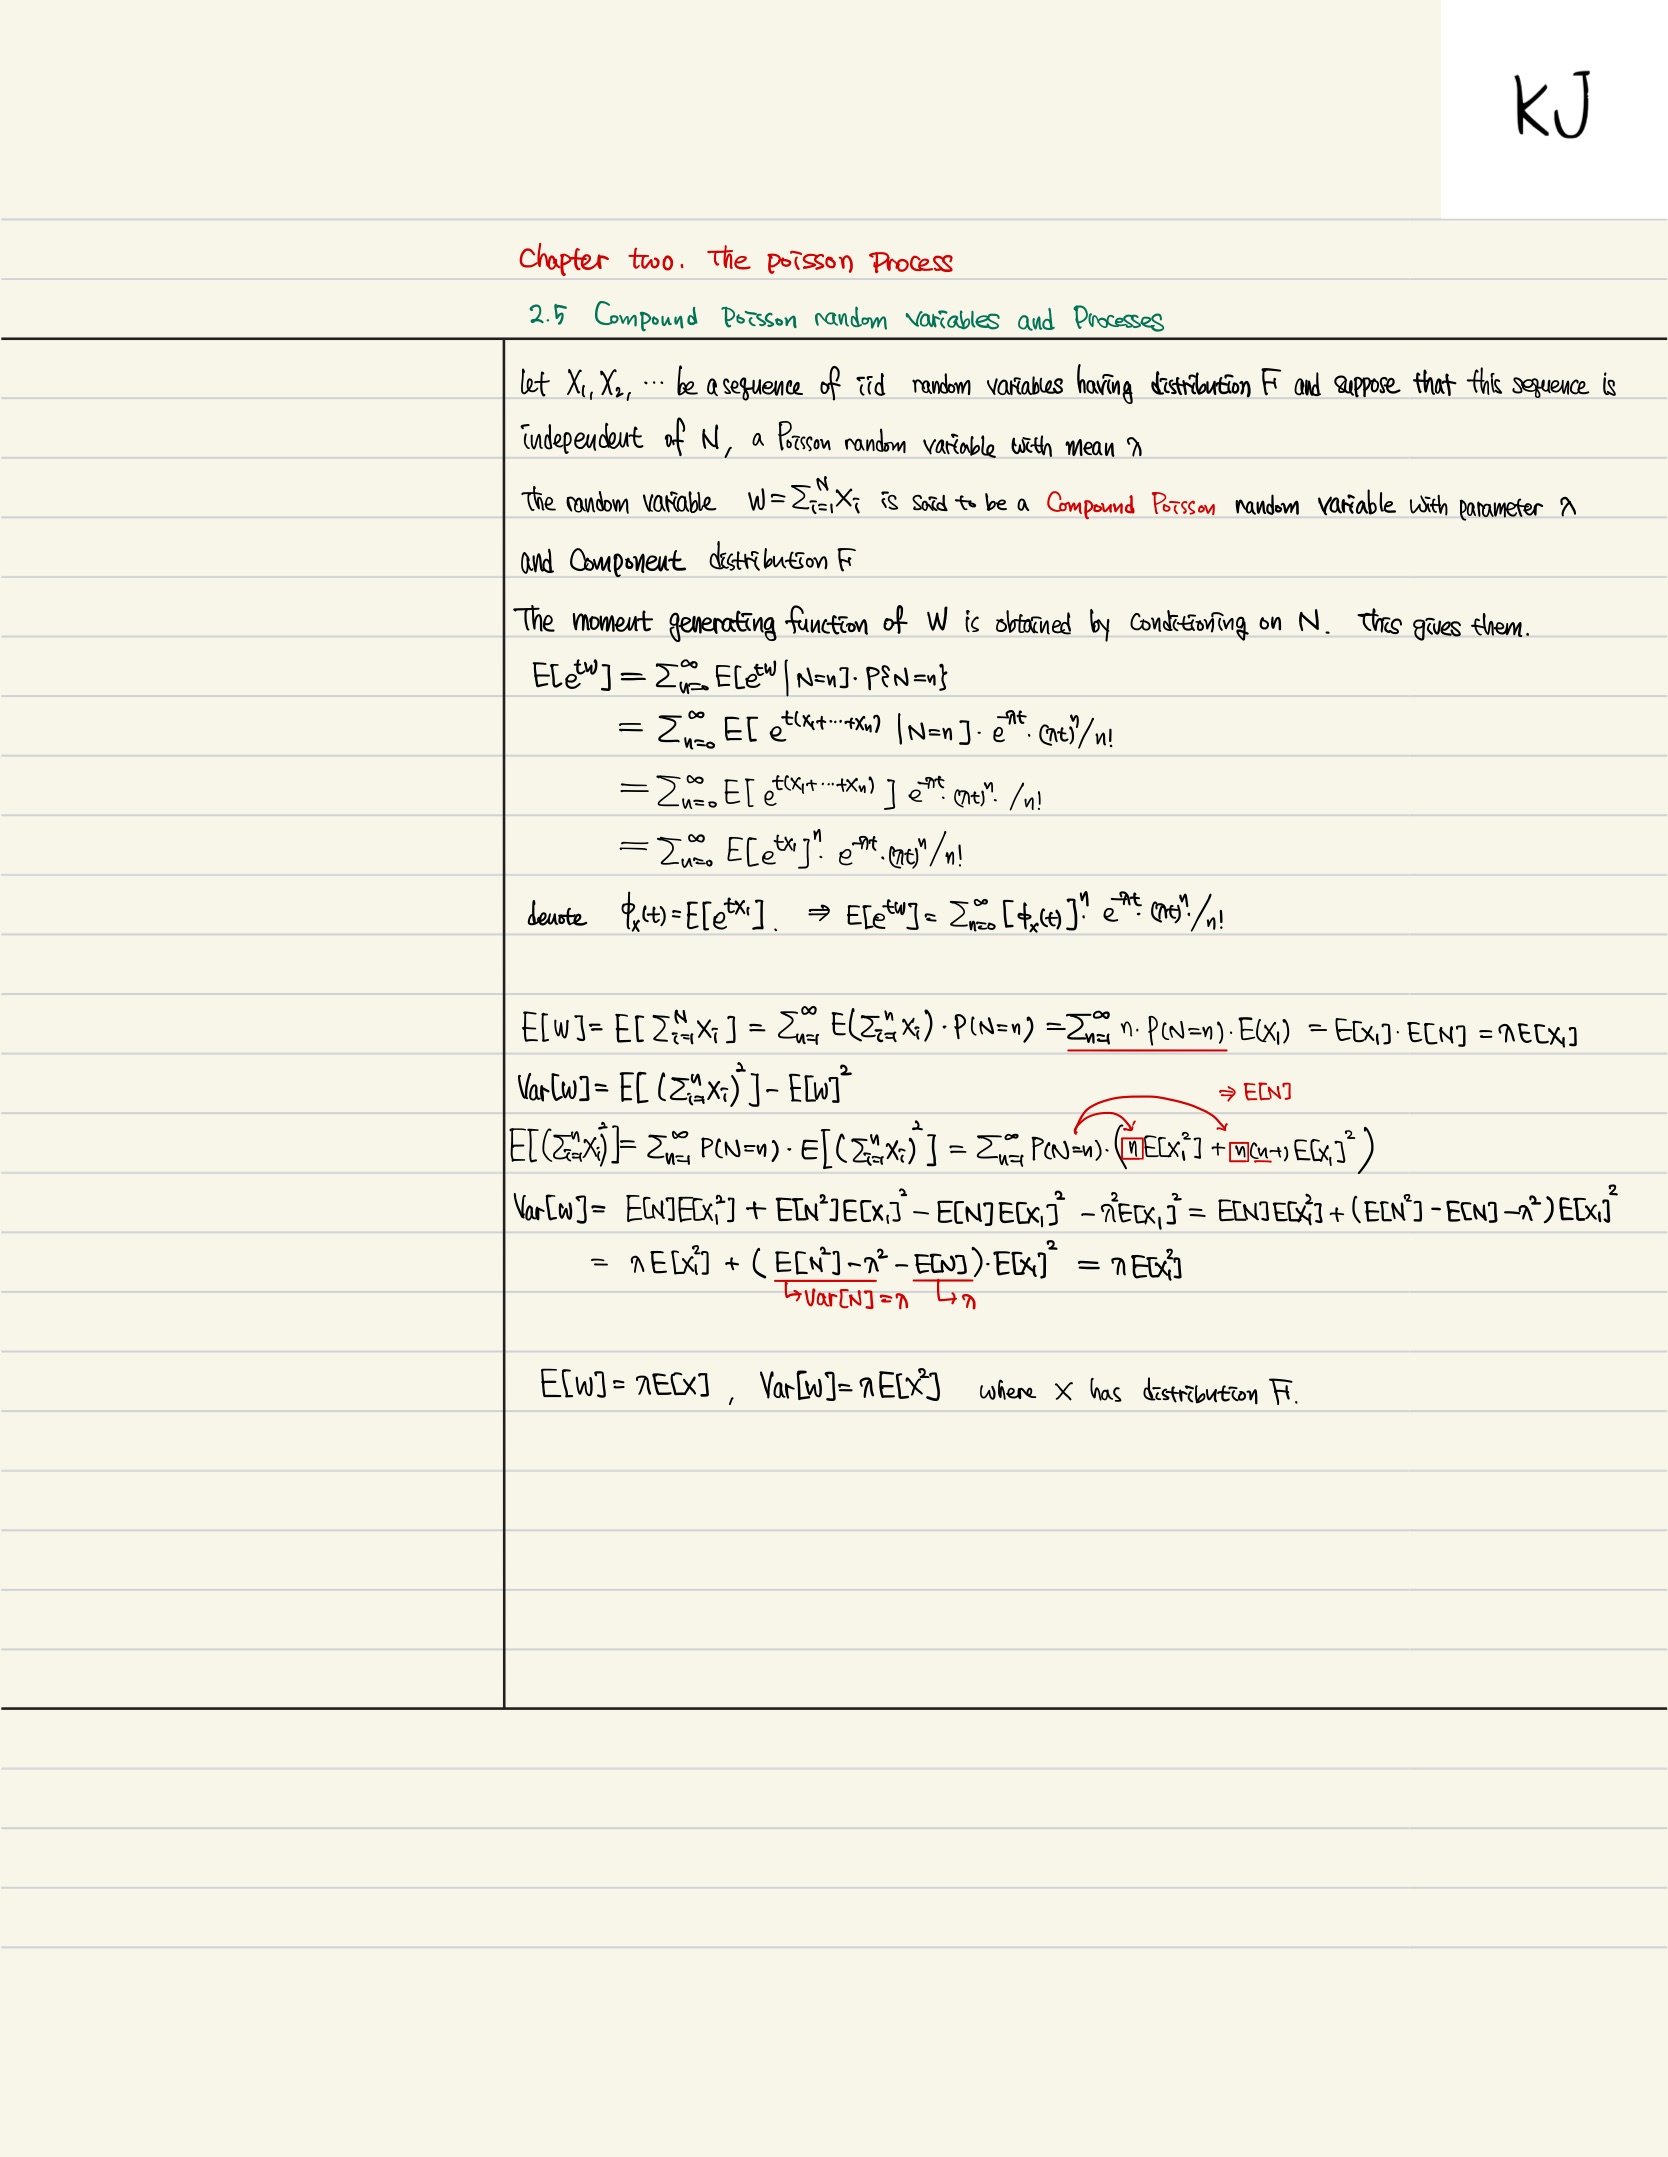 KJ
Chapter two. The poisson Process
2.5 Compound Poisson random variables and Processes
let X₁, X₂, ⋯ be a sequence of iid random variables having distribution F and suppose that this sequence is
independent of N, a Poisson random variable with mean λ
The random variable W=∑ᵢ₌₁ᴺXᵢ is said to be a Compound Poisson random variable with parameter λ
and Component distribution F
The moment generating function of W is obtained by conditioning on N. This gives them.
E[e^{tW}] = ∑_{n=0}^∞ E[e^{tW} | N=n]· P{N=n}
= ∑_{n=0}^∞ E[ e^{t(X₁+⋯+Xₙ)} | N=n ]· e^{-λt}· (λt)ⁿ/n!
= ∑_{n=0}^∞ E[ e^{t(X₁+⋯+Xₙ)} ] e^{-λt}· (λt)ⁿ· /n!
= ∑_{n=0}^∞ E[e^{tX₁}]ⁿ· e^{-λt}·(λt)ⁿ/n!
denote ϕₓ(t)=E[e^{tX₁}]. ⇒ E[e^{tW}] = ∑_{n=0}^∞ [ϕₓ(t)]ⁿ· e^{-λt}· (λt)ⁿ·/n!
E[W] = E[∑_{i=1}^N Xᵢ] = ∑_{n=1}^∞ E(∑_{i=1}^n Xᵢ)·P(N=n) = ∑_{n=1}^∞ n·P(N=n)·E(X₁) = E[X₁]·E[N] = λE[X₁]
Var[W] = E[(∑_{i=1}^n Xᵢ)²] - E[W]²
⇒ E[N]
E[(∑_{i=1}^n Xᵢ)²] = ∑_{n=1}^∞ P(N=n)·E[(∑_{i=1}^n Xᵢ)²] = ∑_{n=1}^∞ P(N=n)·(nE[X₁²] + n(n-1)E[X₁]²)
Var[W] = E[N]E[X₁²] + E[N²]E[X₁]² - E[N]E[X₁]² - λ²E[X₁]² = E[N]E[X₁²] + (E[N²] - E[N] - λ²)E[X₁]²
= λE[X₁²] + (E[N²] - λ² - E[N])·E[X₁]² = λE[X₁²]
↳ Var[N] = λ ↳ λ
E[W] = λE[X], Var[W] = λE[X²] where X has distribution F.